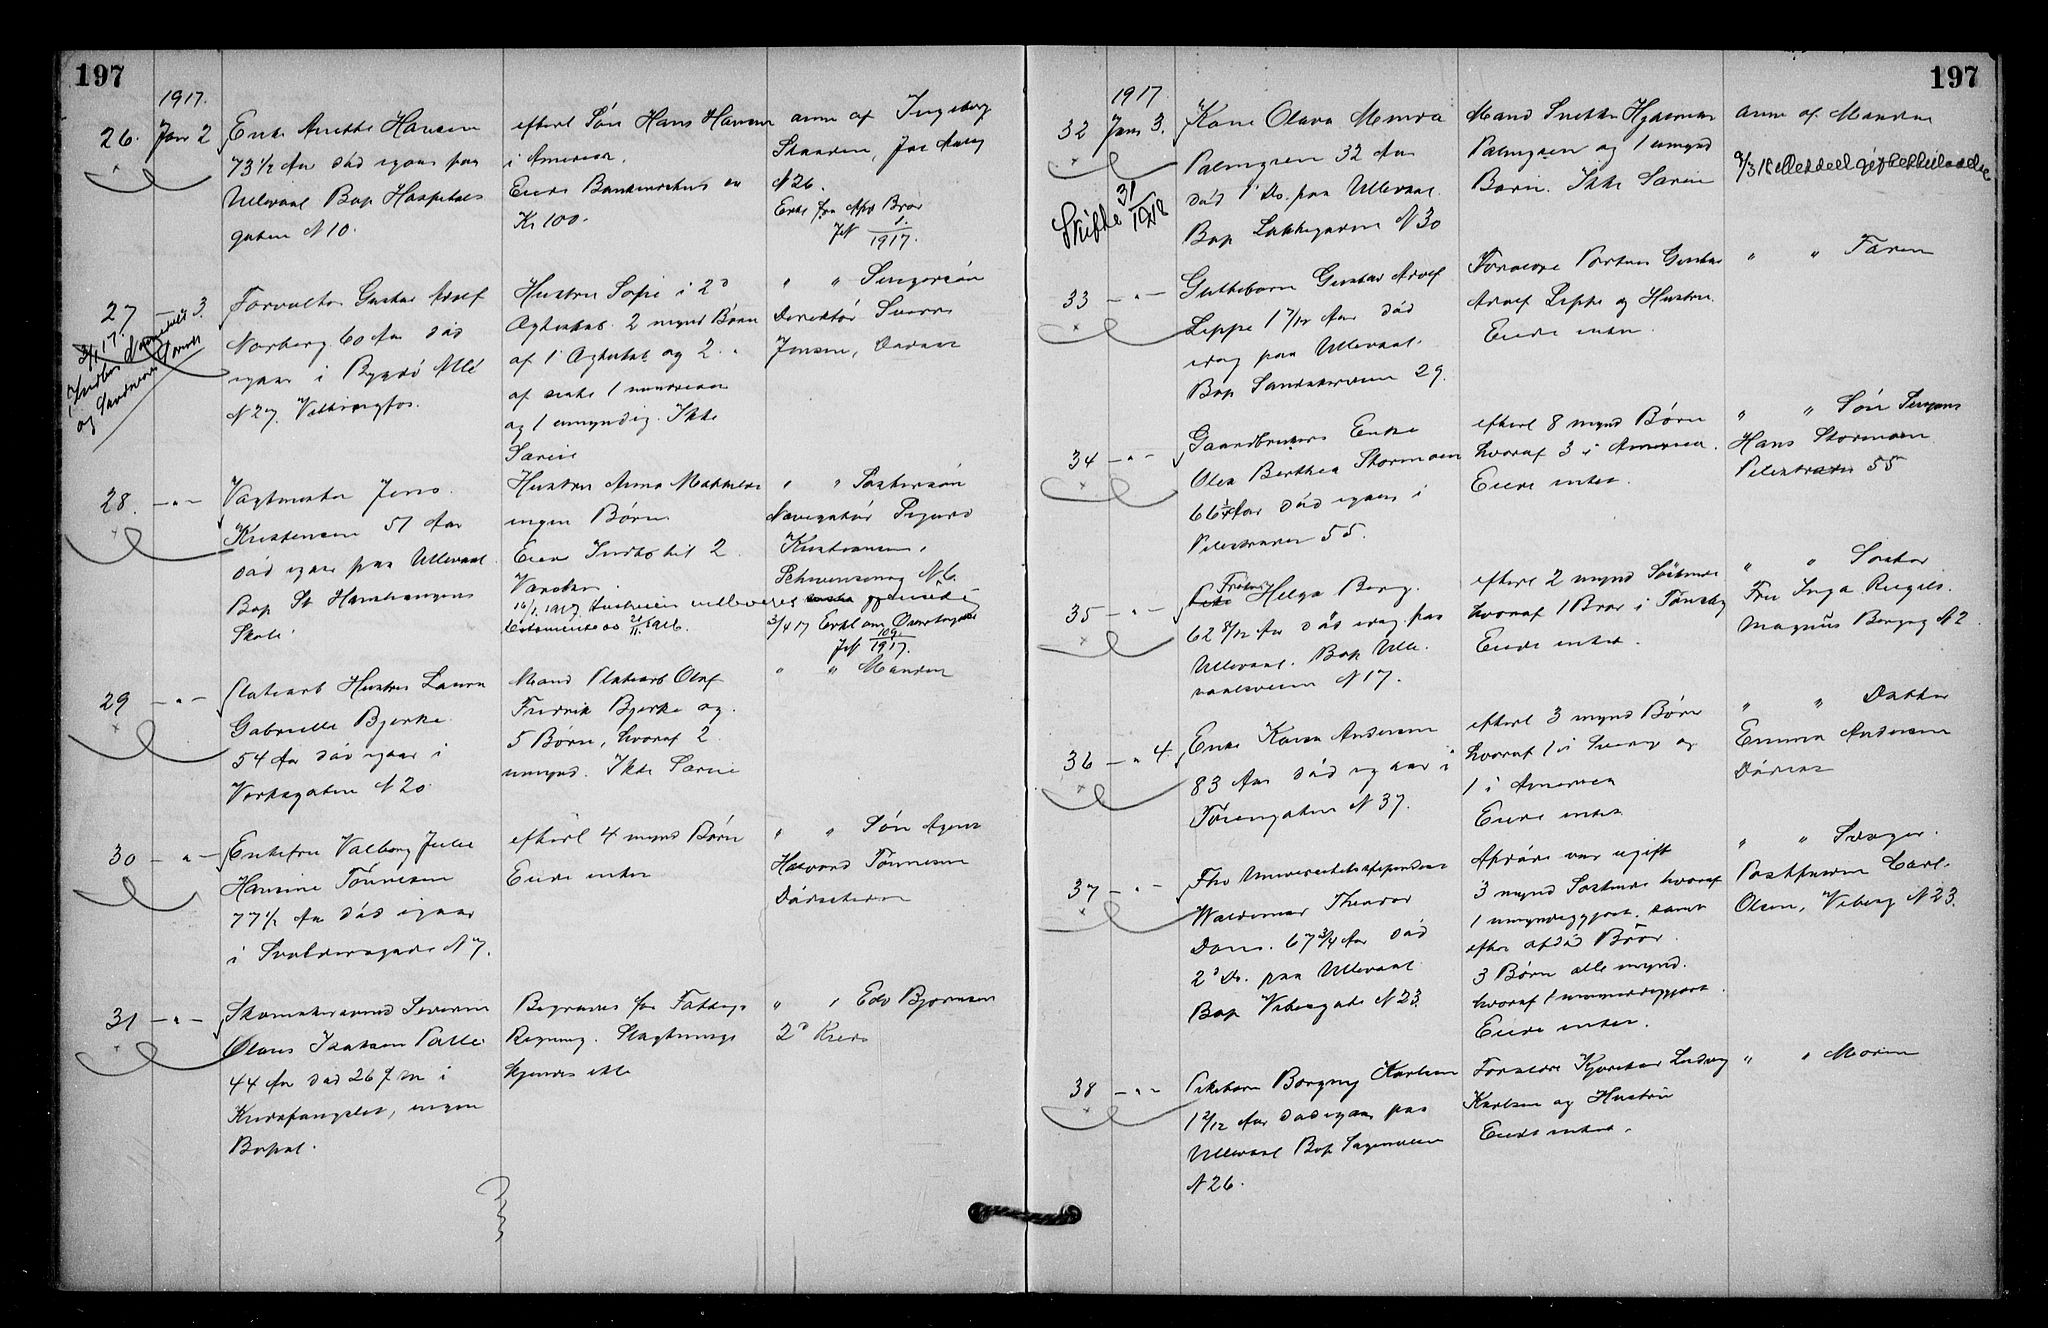 197
1917.
26. Jan 2 Enke Anette Hansen
73 1/2 Aar død igaar paa
Ullevaal Bop Hospitals
gaten N 10.
efterl Søn Hans Hansen
i Amerika.
Eiede Bankindskud ca
Kr 100.
anm af Ingeborg
N 26.
Bror
JN 1/1917.
27 — 3. Forvalter Gustav Adolf
Norberg 60 Aar død
igaar i Bygdø Allé
N 27.
Hustru Sofie i 2d
Ægteskab. 2 mynd Børn
af 1 Ægteskab og 2
af sidste 1
og 1 umyndig. Ikke
Særeie
" " Svigersøn
Direktør Sverre
Jensen,
28. — " — Vagtmester Jens
Kristensen 51 Aar
død igaar paa Ullevaal
Bop St Hanshaugens
Skole
Hustru Anna
ingen Børn
Eier Indbo til 2
Værelser
16/1 1917
" " Søstersøn
Sigurd
Kristiansen,
Schwensensg N 6.
3/4 17 Erkl om Overtagelse
JN 109/1917.
29 — " — Hustru Laura
Gabrielle Bjerke
54 Aar død igaar i
Verksgaten N 20
Mand Olaf
Fredrik Bjerke og
5 Børn, hvoraf 2
umynd. Ikke Særeie
" " Manden
30 — " — Enkefru Valborg Julie
Hansine Tønnesen
77 1/2 Aar død igaar
i N 7.
efterl 4 mynd Børn
Eiede intet
" " Søn Agent
Tønnesen
31 — " — Skomakersvend Severin
Olaus Isaksen
44 Aar død 26 f M i
Kredsfængslet, ingen
Bopæl.
Begraves for Fattigv
Regning. Slægtninge
kjendes ikke
" " Edv Bjørnsen
2d Kreds
197
1917
32 Jan 3. Kone Olava Minda
Palmgren 32 Aar
død 1 ds. paa Ullevaal.
Bop Lakkegaten N 30
Skifte 31/1918
Mand
Palmgren og 1 umynd
Barn. Ikke Særeie
anm af Manden
33 — " — Guttebarn Gustav Adolf
Leppe 1 7/12 Aar død
idag paa Ullevaal.
Bop Sandakerveien 29.
Forældre Gustav
Adolf Leppe og Hustru
Eiede intet.
" " Faren
34 — " — Gaardbrukers Enke
Olea Berthea Stormoen
66 1/4 Aar død igaar i
Pilestrædet 55.
efterl 8 mynd Børn
hvoraf 3 i Amerika.
Eiede intet.
" " Søn
Hans Stormoen
Pilestrædet 55
35 — " — Frøken Helga Berg.
62 8/12 Aar død idag paa
Ullevaal. Bop Ulle-
vaalsveien N 17.
efterl 2 mynd Søstre
hvoraf 1 Bror i Tønsbg
Eiede intet.
" " Søster
Fru Inga
Magnus Bergsg N 2
36 — " 4. Enke Karen Andersen
83 Aar død igaar i
N 37.
efterl 3 mynd Børn
hvoraf 1 i Sverig og
1 i Amerika
Eiede intet
" " Datter
Emma Andersen
37 — " — Fhv Universitetsstipendiat
Waldemar Theodor
67 3/4 Aar død
2 ds. paa Ullevaal
Bop Vibesgate N 23.
Afdøde var ugift
3 mynd Søstre hvoraf
1 umyndiggjort. samt
efter afdød Bror
3 Børn alle mynd.
hvoraf 1 umyndiggjort.
Eiede intet.
" " Svoger.
Carl
Olsen, Vibesg N 23.
38 — " — Pikebarn Borgny Karlsen
1 2/12 Aar død igaar paa
Ullevaal Bop Sagveien
N 26.
Forældre Kjørekar Ludvig
Karlsen og Hustru
Eiede intet.
" " Moren